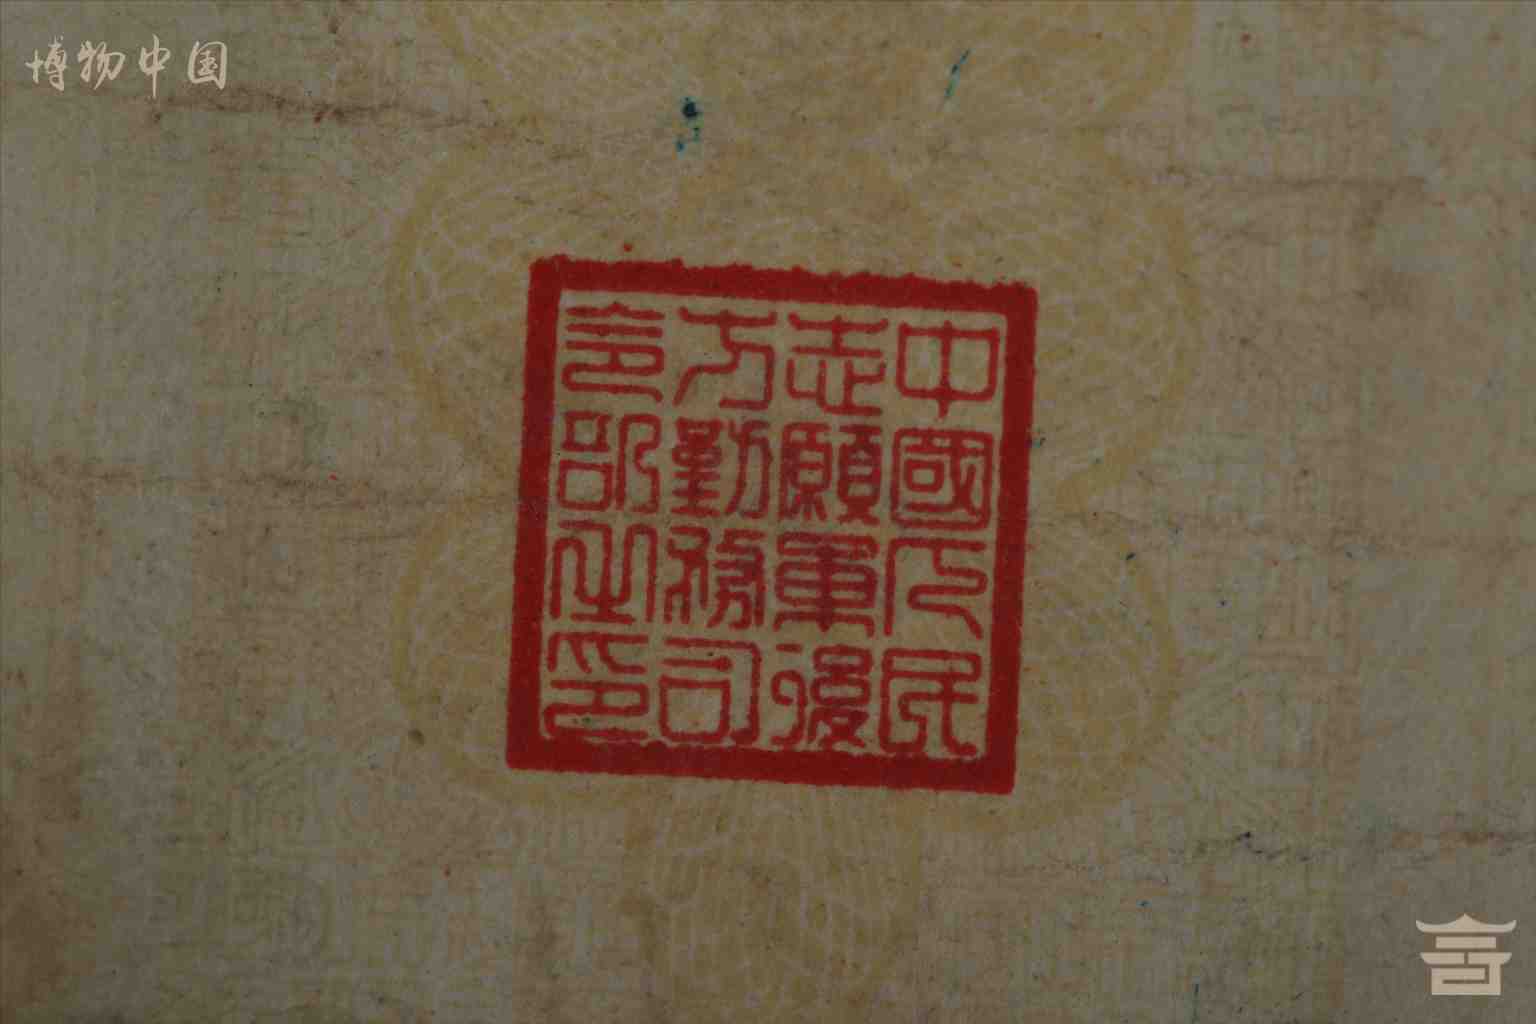 博物中国
中國人民
志願軍後
方勤務司
令部之印